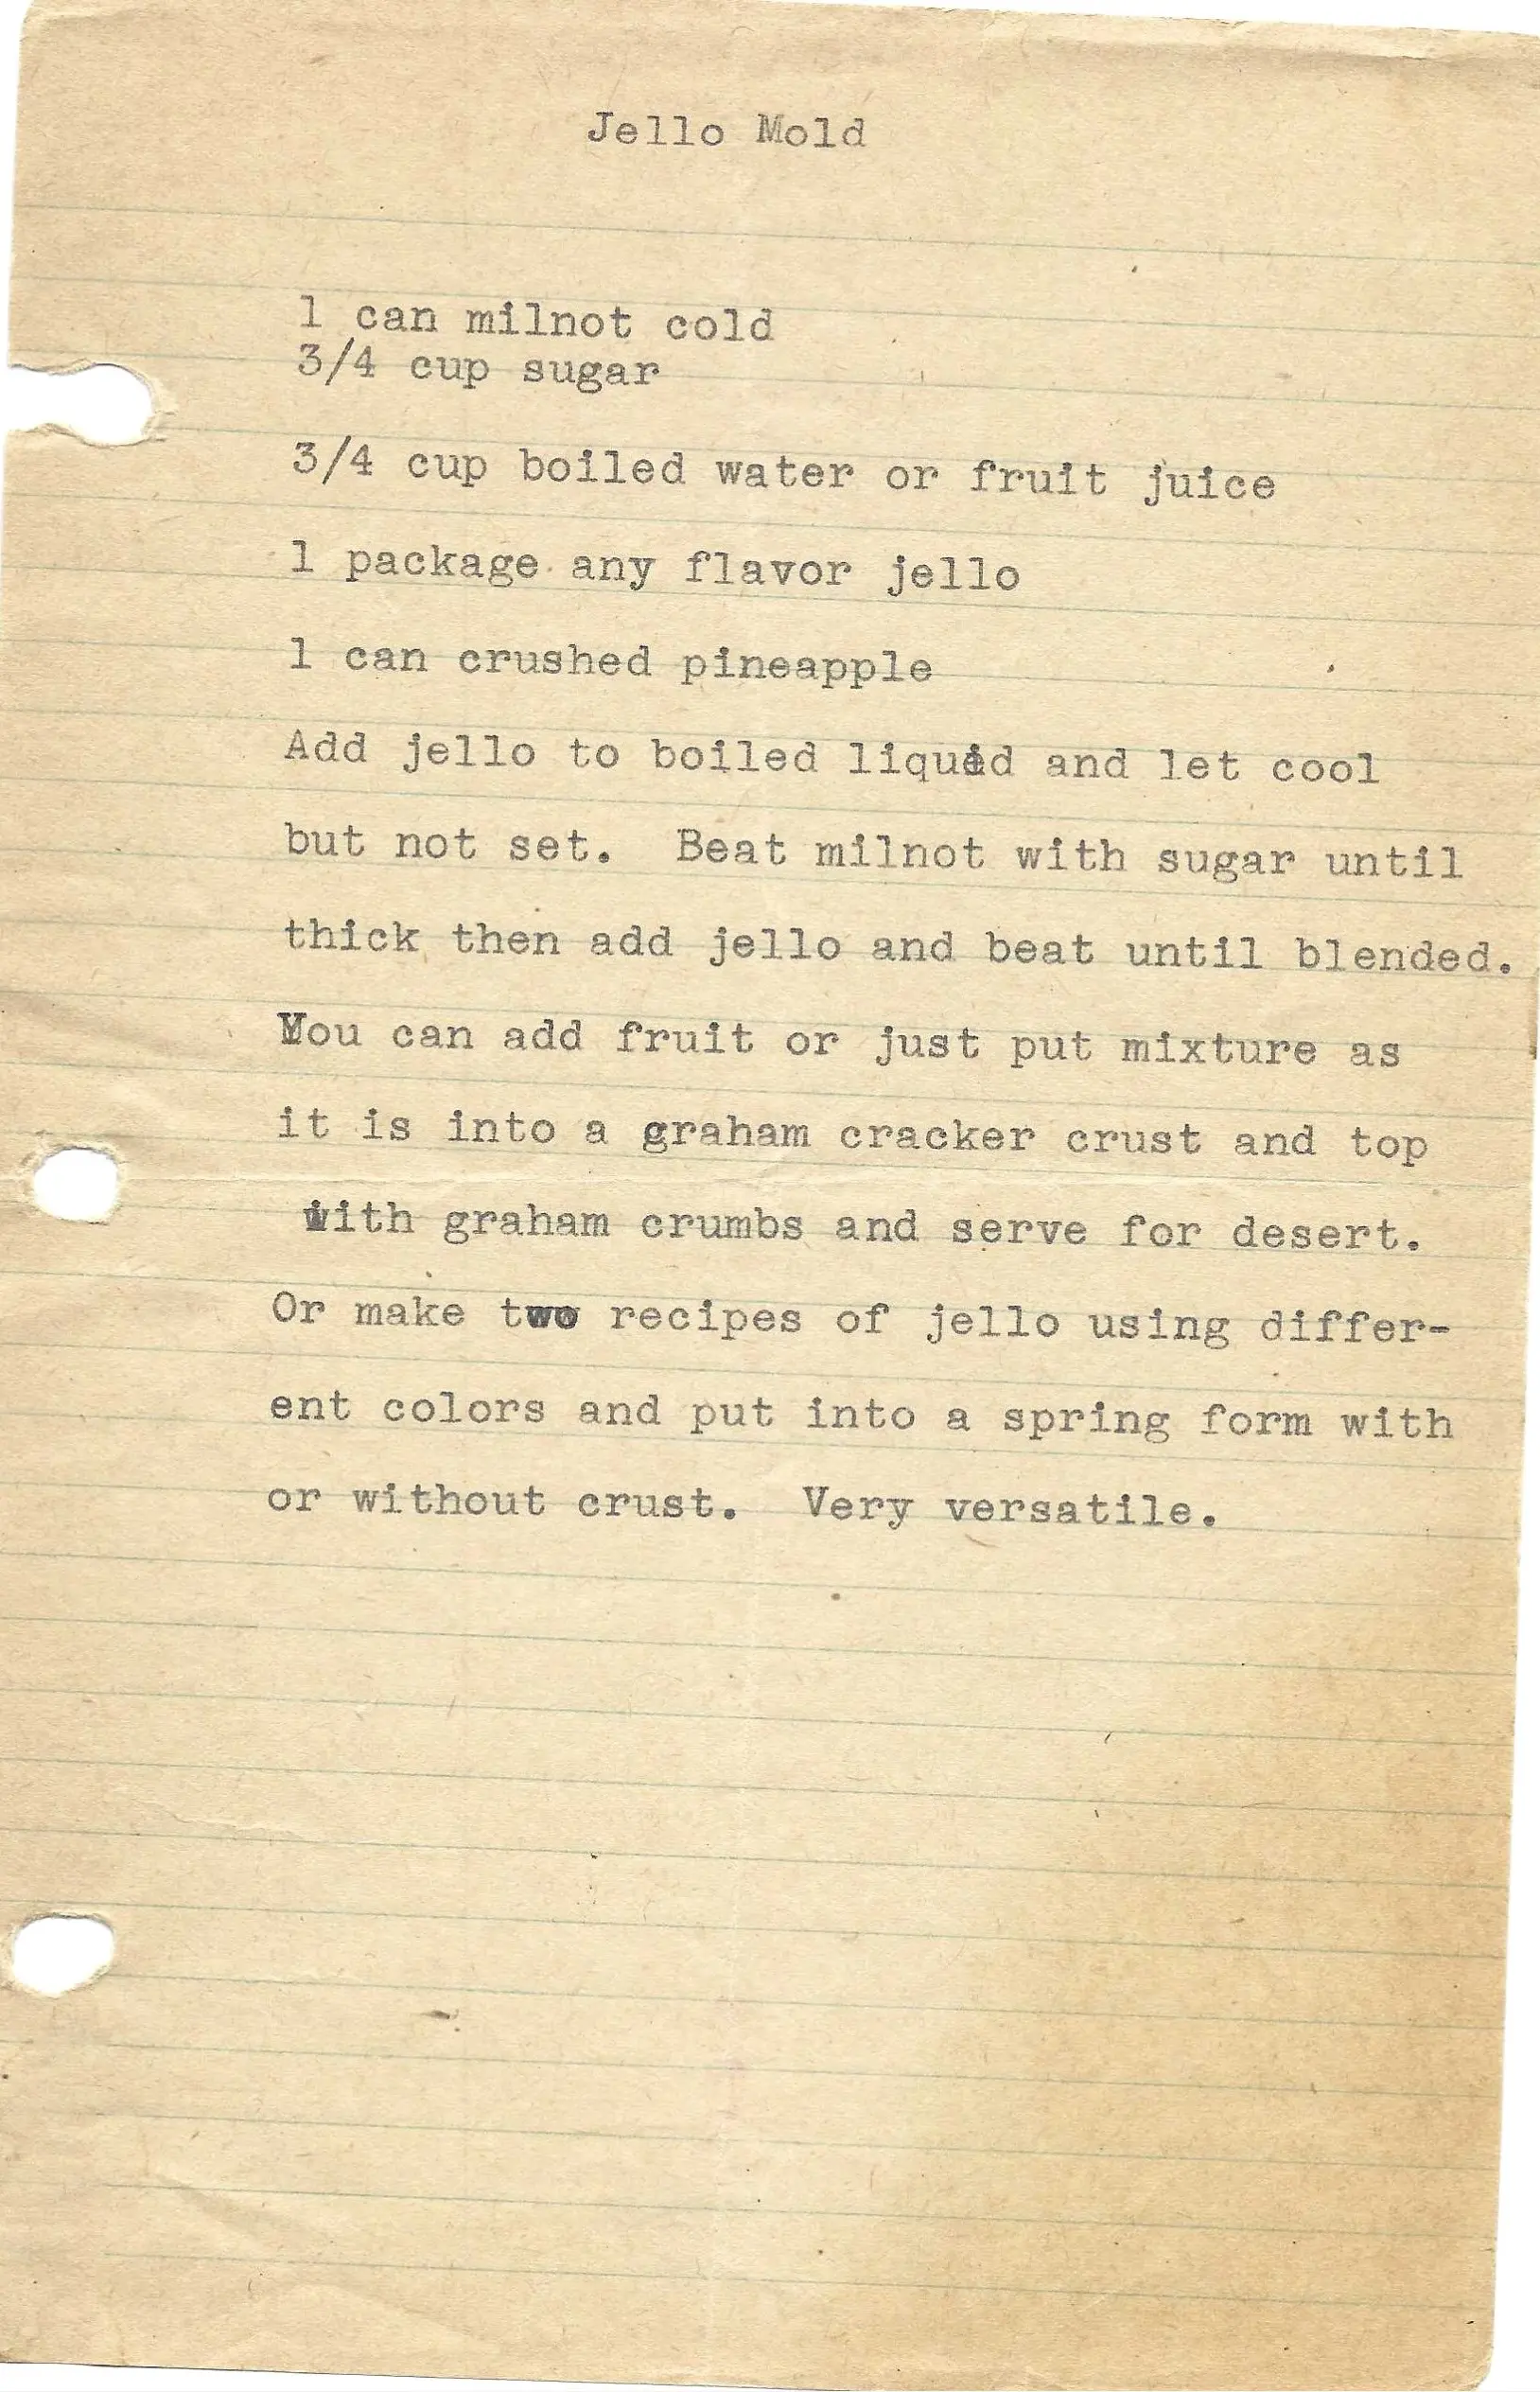 Jello Mold
1 can milnot cold
3/4 cup sugar
3/4 cup boiled water or fruit juice
1 package any flavor jello
1 can crushed pineapple
Add jello to boiled liquid and let cool
but not set. Beat milnot with sugar until
thick then add jello and beat until blended.
You can add fruit or just put mixture as
it is into a graham cracker crust and top
with graham crumbs and serve for desert.
Or make two recipes of jello using differ-
ent colors and put into a spring form with
or without crust. Very versatile.